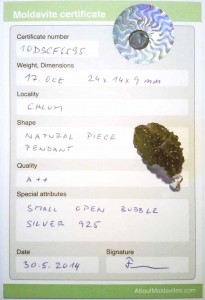 Moldavite certificate
Certificate number
10DSCF6595
Weight, Dimensions
17.0ct 24x14x9mm
Locality
CHLUM
Shape
NATURAL PIECE
PENDANT
Quality
A++
Special attributes
SMALL OPEN BUBBLE
SILVER 925
Date
Signature
30.5.2014
AboutMoldavites.com